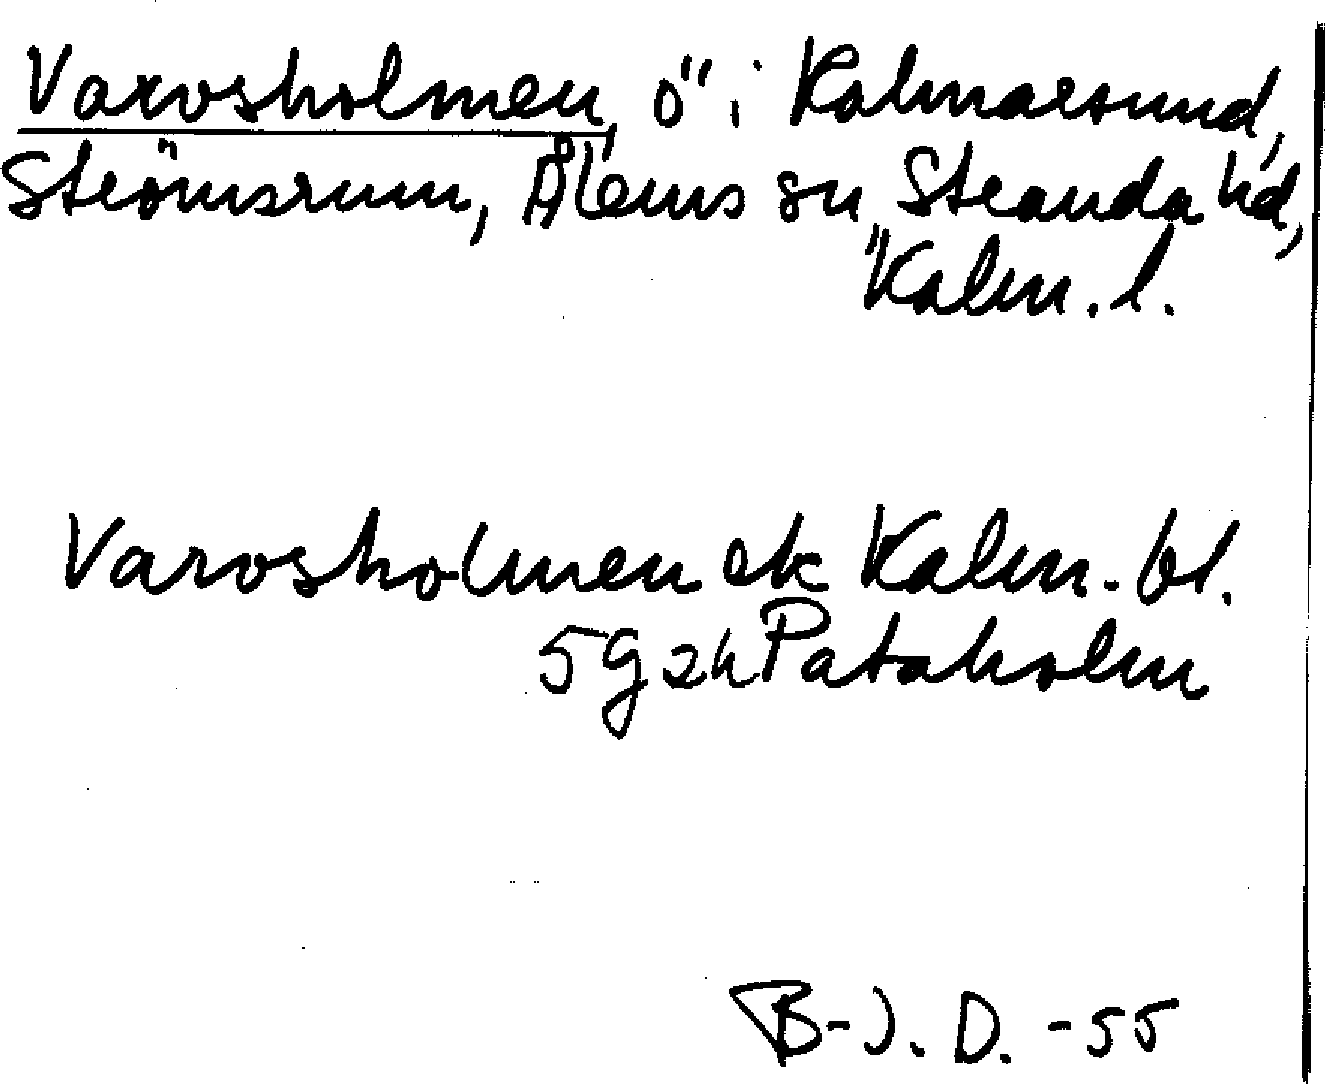 Varvsholmen, ö i Kalmarsund,
Strömsrum, Ålems sn, Stranda hd,
Kalm. l.
Varvsholmen ek Kalm. bl.
5 g 2h Pataholm
B-J. D. -55